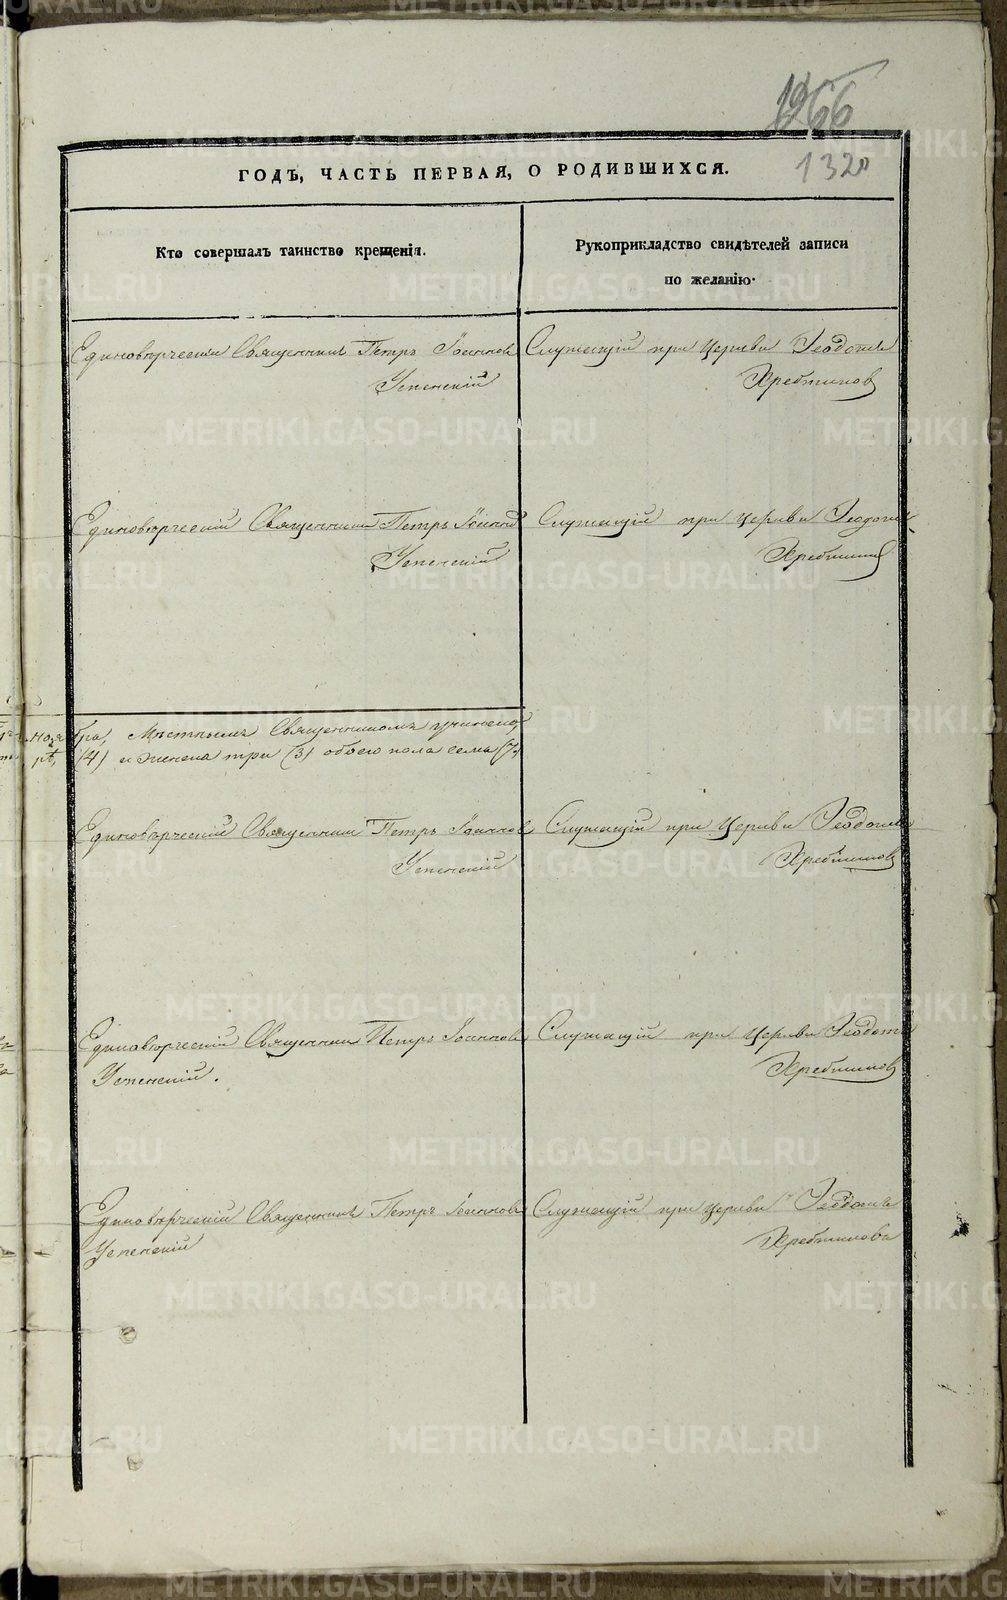 1266
132 об
ГОДЪ, ЧАСТЬ ПЕРВАЯ, О РОДИВШИХСЯ.
Кто совершалъ таинство крещенія.
Рукоприкладство свидѣтелей записи
по желанію.
Единовѣрческій Священникъ Петръ Іоанновъ
Успенскій
Служащій при Церкви
Хребтиковъ
Единовѣрческій Священникъ Петръ Іоаннов
Успенскій
Служащій при Церкви
Хребтиков
Мѣстнымъ Священникомъ
(4) и женска три (3) обоего пола семь (7)
Единовѣрческій Священник Петръ Іоаннов
Успенскій
Служащій при Церкви
Хребтиковъ
Единовѣрческій Священник Петръ Іоаннов
Успенскій.
Служащій при Церкви
Хребтиковъ
Единовѣрческій Священникъ Петръ Іоаннов
Успенскій
Служащій при Церкви
Хребтиковъ
METRIKI.GASO-URAL.RU